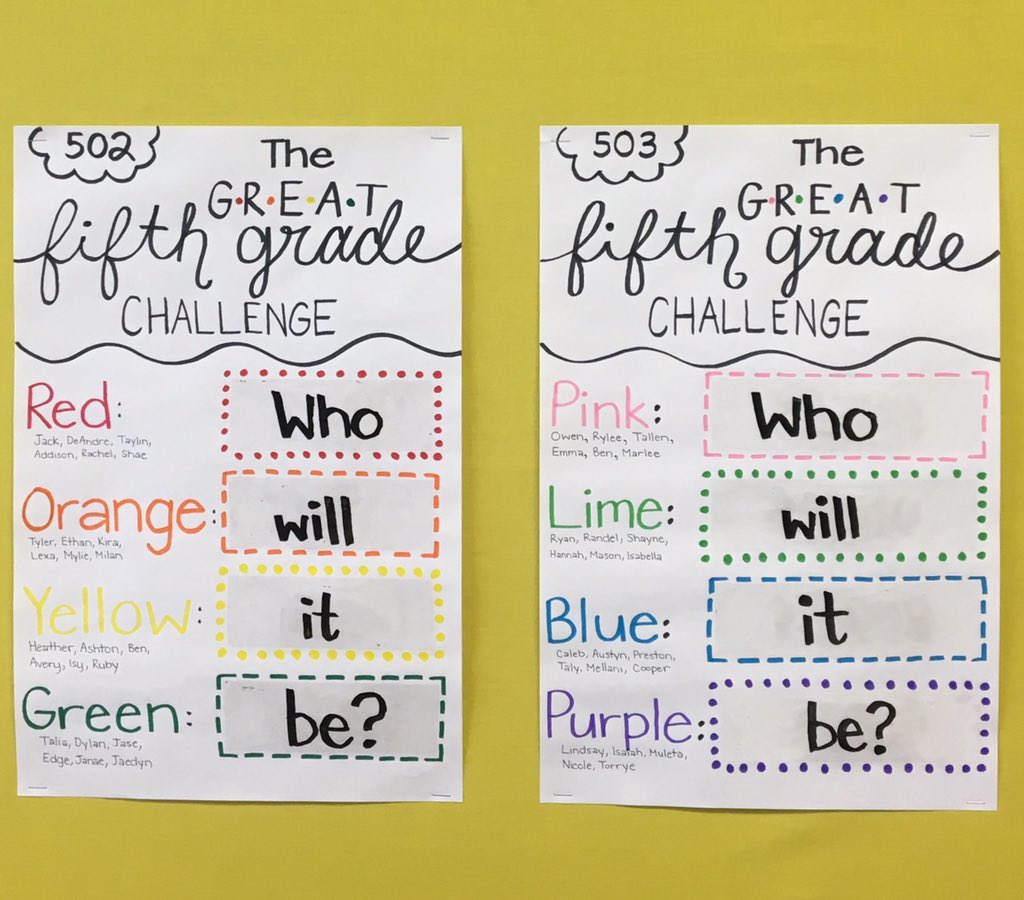 502
The
G•R•E•A•T
fifth grade
CHALLENGE
Red:
Jack, DeAndre, Taylin,
Addison, Rachel, Shae
Who
Orange:
Tyler, Ethan, Kira,
Lexa, Mylie, Milan
will
Yellow:
Heather, Ashton, Ben,
Avery, Isy, Ruby
it
Green:
Talia, Dylan, Jase,
Edge, Janae, Jaedyn
be?
503
The
G•R•E•A•T
fifth grade
CHALLENGE
Pink:
Owen, Rylee, Tallen,
Emma, Ben, Marlee
Who
Lime:
Ryan, Randel, Shayne,
Hannah, Mason, Isabella
will
Blue:
Caleb, Austyn, Preston,
Taly, Mellani, Cooper
it
Purple:
Lindsay, Isaiah, Muleta,
Nicole, Torrye
be?